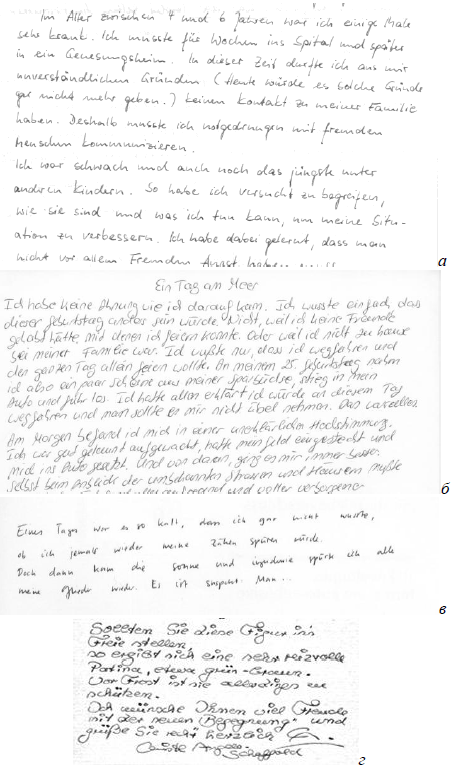 Im Alter zwischen 4 und 6 Jahren war ich einige Male
sehr krank. Ich musste für Wochen ins Spital und später
in ein Genesungsheim. In dieser Zeit durfte ich aus mir
unverständlichen Gründen (Heute würde es solche Gründe
gar nicht mehr geben.) keinen Kontakt zu meiner Familie
haben. Deshalb musste ich notgedrungen mit fremden
Menschen kommunizieren.
Ich war schwach und auch noch das jüngste unter
andren Kindern. So habe ich versucht zu begreifen,
wie sie sind und was ich tun kann, um meine Situ-
ation zu verbessern. Ich habe dabei gelernt, dass man
nicht vor allem Fremden Angst haben
а
Ein Tag am Meer
Ich habe keine Ahnung wie ich darauf kam. Ich wusste einfach, das
dieser Geburtstag anders sein würde. Nicht, weil ich keine Freunde
gehabt hätte, mit denen ich feiern konnte. Oder weil ich nicht zu hause
bei meiner Familie war. Ich wußte nur, dass ich wegfahren und
den ganzen Tag allein feiern wollte. An meinem 25. Geburtstag nahm
ich also ein paar Scheine aus meiner Sparbüchse, stieg in mein
Auto und fuhr los. Ich hatte allen erklärt ich würde an diesem Tag
wegfahren und man sollte es mir nicht übel nehmen.
Am Morgen befand ich mich in einer unerklärlichen Hochstimmung.
Ich war gut gelaunt aufgewacht, hatte mein Geld eingesteckt und
mich ins Auto gesetzt. Und von da an, ging es mir immer besser.
Selbst beim Anblick der Strassen und Häusern mußte
б
Eines Tages war es so kalt, dass ich gar nicht wusste,
ob ich jemals wieder meine Zähen spüren würde.
Doch dann kam die Sonne und irgendwie spürte ich alle
meine Glieder wieder. Es ist Man...
в
Sollten Sie diese Figur in's
Freie stellen,
so ergibt sich eine sehr reizvolle
Patina, etwa grün-braun.
Vor Frost ist sie allerdings zu
schützen.
Ich wünsche Ihnen viel Freude
mit der neuen "Begegnung" und
grüße Sie recht herzlich
г